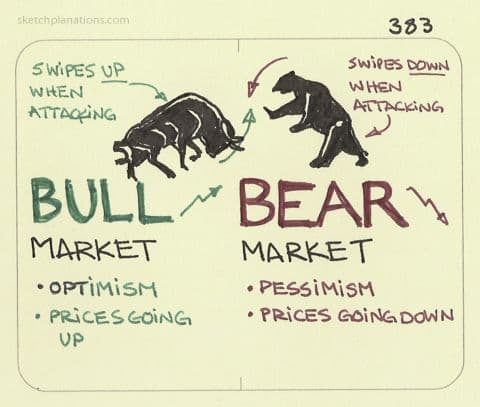 sketchplanations.com
383
SWIPES UP
WHEN
ATTACKING
SWIPES DOWN
WHEN
ATTACKING
BULL
MARKET
• OPTIMISM
• PRICES GOING
UP
BEAR
MARKET
• PESSIMISM
• PRICES GOING DOWN